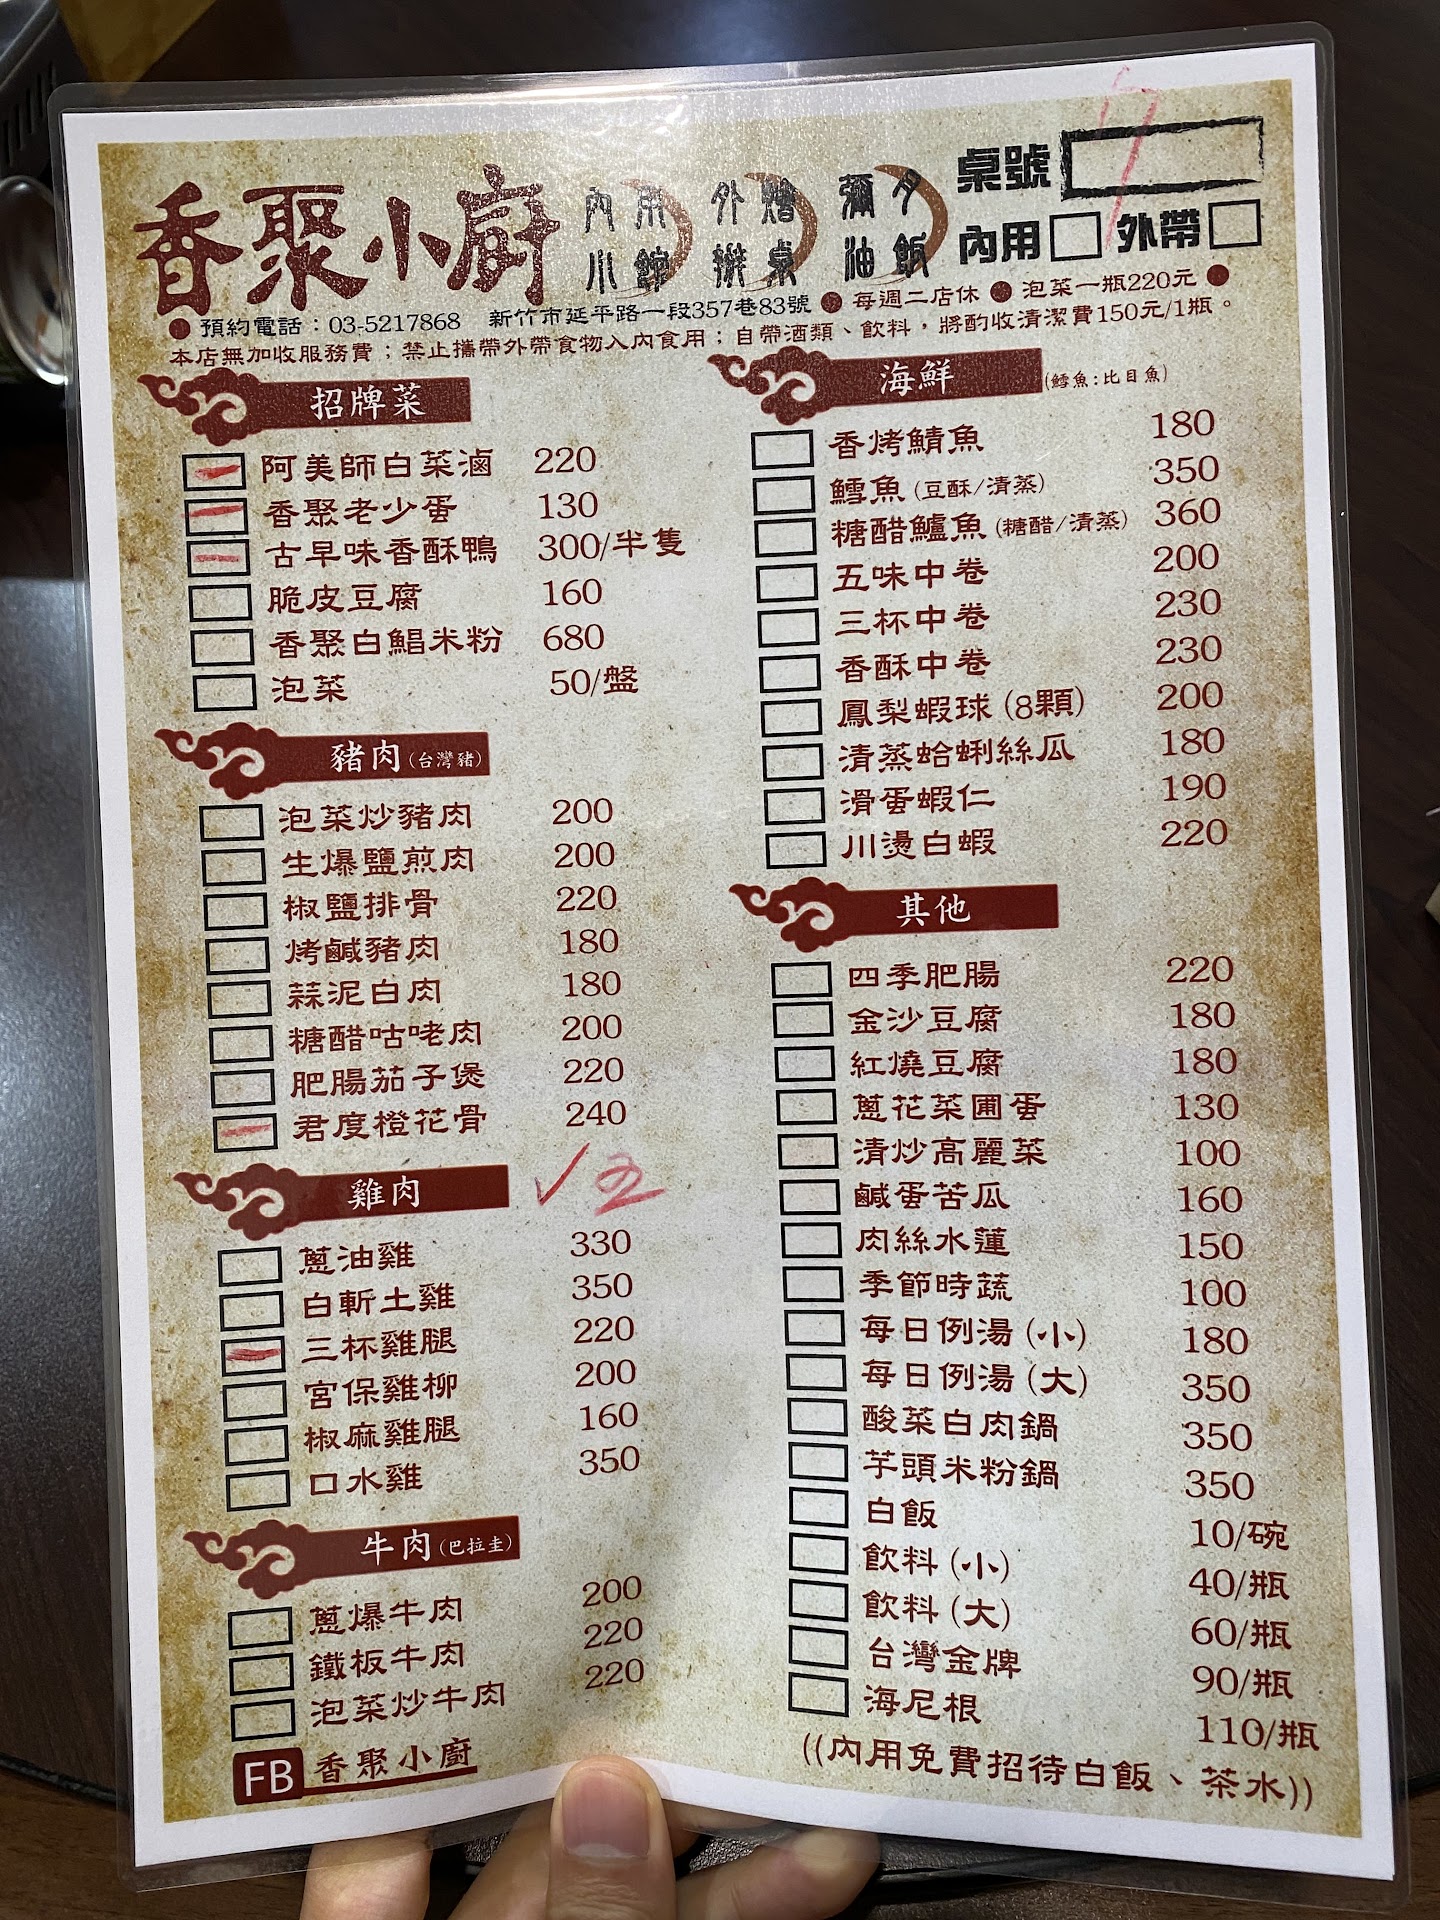 香聚小廚
內用 外燴 彌月
小館 辦桌 油飯
桌號
內用 外帶
預約電話：03-5217868 新竹市延平路一段357巷83號 ● 每週二店休 ● 泡菜一瓶220元 ●
本店無加收服務費；禁止攜帶外帶食物入內食用；自帶酒類、飲料，將酌收清潔費150元/1瓶。
招牌菜
阿美師白菜滷 220
香聚老少蛋 130
古早味香酥鴨 300/半隻
脆皮豆腐 160
香聚白鯧米粉 680
泡菜 50/盤
豬肉(台灣豬)
泡菜炒豬肉 200
生爆鹽煎肉 200
椒鹽排骨 220
烤鹹豬肉 180
蒜泥白肉 180
糖醋咕咾肉 200
肥腸茄子煲 220
君度橙花骨 240
雞肉
蔥油雞 330
白斬土雞 350
三杯雞腿 220
宮保雞柳 200
椒麻雞腿 160
口水雞 350
牛肉(巴拉圭)
蔥爆牛肉 200
鐵板牛肉 220
泡菜炒牛肉 220
FB 香聚小廚
海鮮 (鱈魚:比目魚)
香烤鯖魚 180
鱈魚 (豆酥/清蒸) 350
糖醋鱸魚 (糖醋/清蒸) 360
五味中卷 200
三杯中卷 230
香酥中卷 230
鳳梨蝦球 (8顆) 200
清蒸蛤蜊絲瓜 180
滑蛋蝦仁 190
川燙白蝦 220
其他
四季肥腸 220
金沙豆腐 180
紅燒豆腐 180
蔥花菜圃蛋 130
清炒高麗菜 100
鹹蛋苦瓜 160
肉絲水蓮 150
季節時蔬 100
每日例湯 (小) 180
每日例湯 (大) 350
酸菜白肉鍋 350
芋頭米粉鍋 350
白飯 10/碗
飲料 (小) 40/瓶
飲料 (大) 60/瓶
台灣金牌 90/瓶
海尼根 110/瓶
((內用免費招待白飯、茶水))